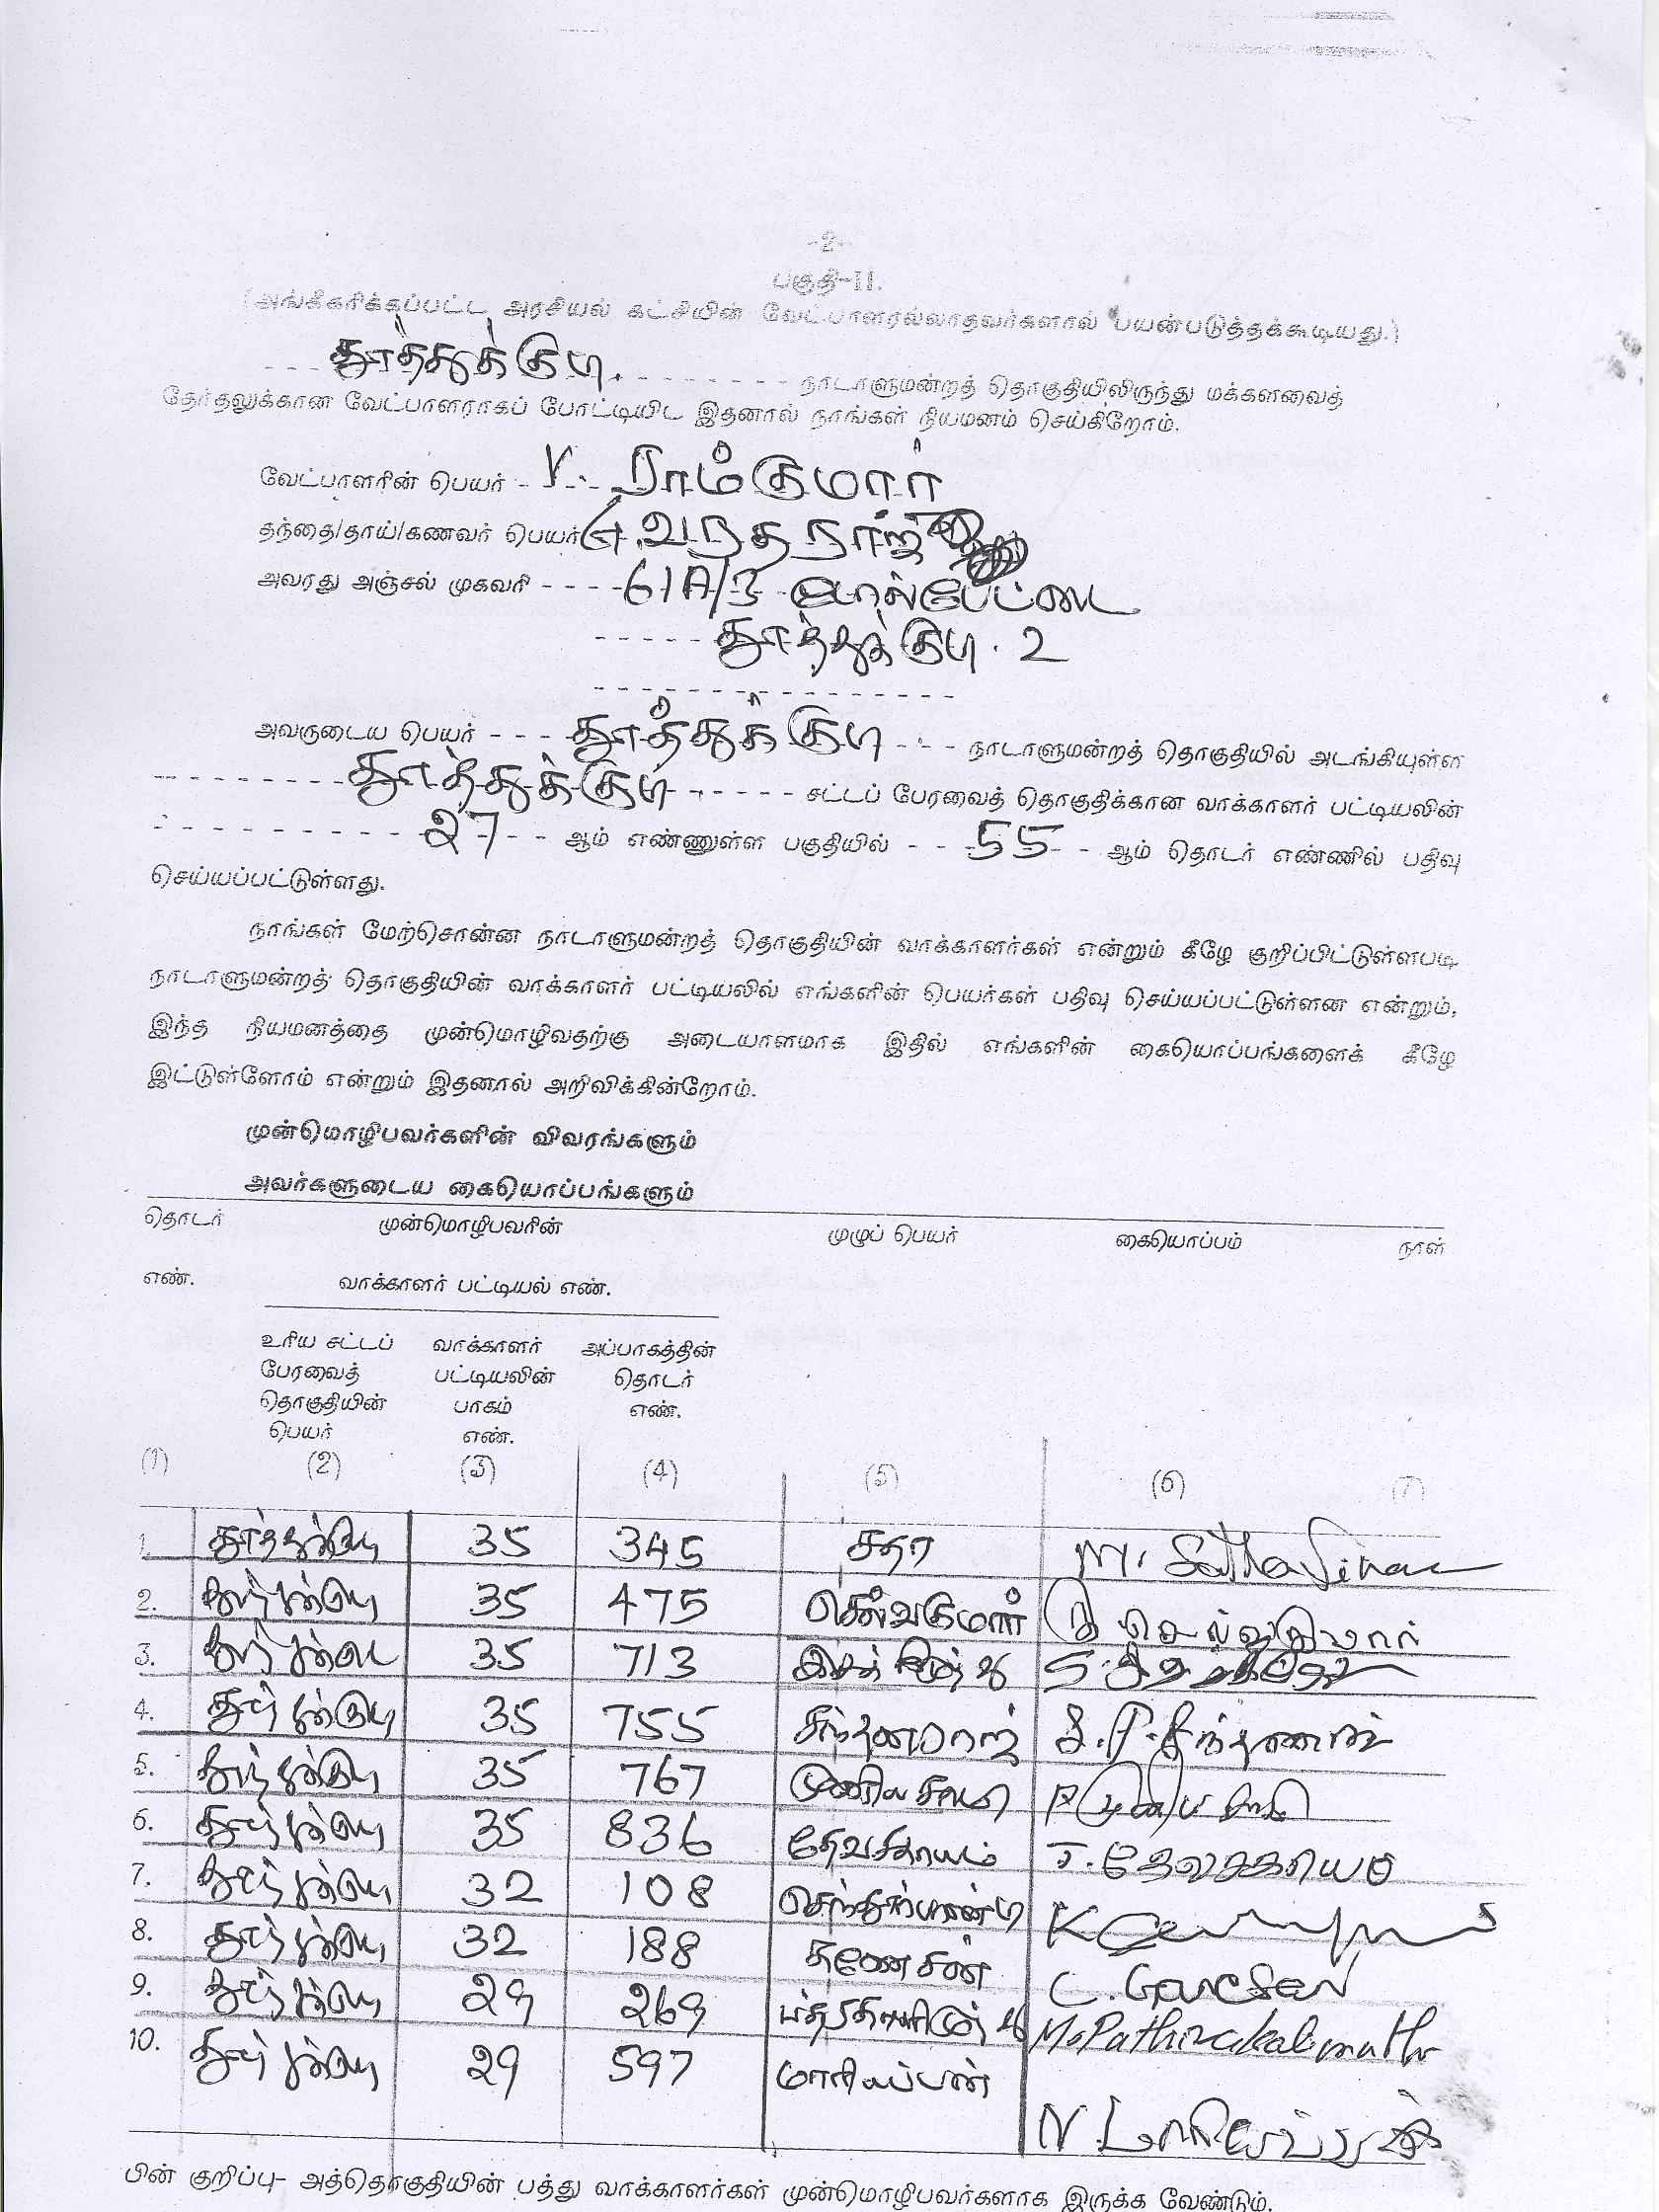 -2-
பகுதி-II.
(அங்கீகரிக்கப்பட்ட அரசியல் கட்சியின் வேட்பாளரல்லாதவர்களால் பயன்படுத்தக்கூடியது.)
தூத்துக்குடி நாடாளுமன்றத் தொகுதியிலிருந்து மக்களவைத்
தேர்தலுக்கான வேட்பாளராகப் போட்டியிட இதனால் நாங்கள் நியமனம் செய்கிறோம்.
வேட்பாளரின் பெயர் - V. ராம்குமார்
தந்தை/தாய்/கணவர் பெயர்
அவரது அஞ்சல் முகவரி - - - - 61A/3 போல்பேட்டை
தூத்துக்குடி. 2
அவருடைய பெயர் - - - தூத்துக்குடி - - - நாடாளுமன்றத் தொகுதியில் அடங்கியுள்ள
தூத்துக்குடி - - - - - சட்டப் பேரவைத் தொகுதிக்கான வாக்காளர் பட்டியலின்
27 - - ஆம் எண்ணுள்ள பகுதியில் - - 55 - - ஆம் தொடர் எண்ணில் பதிவு
செய்யப்பட்டுள்ளது.
நாங்கள் மேற்சொன்ன நாடாளுமன்றத் தொகுதியின் வாக்காளர்கள் என்றும் கீழே குறிப்பிட்டுள்ளபடி
நாடாளுமன்றத் தொகுதியின் வாக்காளர் பட்டியலில் எங்களின் பெயர்கள் பதிவு செய்யப்பட்டுள்ளன என்றும்,
இந்த நியமனத்தை முன்மொழிவதற்கு அடையாளமாக இதில் எங்களின் கையொப்பங்களைக் கீழே
இட்டுள்ளோம் என்றும் இதனால் அறிவிக்கின்றோம்.
முன்மொழிபவர்களின் விவரங்களும்
அவர்களுடைய கையொப்பங்களும்
தொடர் முன்மொழிபவரின் முழுப் பெயர் கையொப்பம் நாள்
எண். வாக்காளர் பட்டியல் எண்.
உரிய சட்டப் வாக்காளர் அப்பாகத்தின்
பேரவைத் பட்டியலின் தொடர்
தொகுதியின் பாகம் எண்.
பெயர் எண்.
(1) (2) (3) (4) (5) (6) (7)
1. தூத்துக்குடி 35 345 சதா
2. தூத்துக்குடி 35 475 செல்வகுமார் செல்வகுமார்
3. தூத்துக்குடி 35 713
4. தூத்துக்குடி 35 755 சந்தனராஜ்
5. தூத்துக்குடி 35 767 முனியசாமி
6. தூத்துக்குடி 35 836 தேவசகாயம்
7. தூத்துக்குடி 32 108 செந்தூர்பாண்டி
8. தூத்துக்குடி 32 188 கணேசன் C. Ganesan
9. தூத்துக்குடி 29 269 பத்திரகாளிமுத்து
10. தூத்துக்குடி 29 597 மாரியப்பன்
N. மாரியப்பன்
பின் குறிப்பு- அத்தொகுதியின் பத்து வாக்காளர்கள் முன்மொழிபவர்களாக இருக்க வேண்டும்.